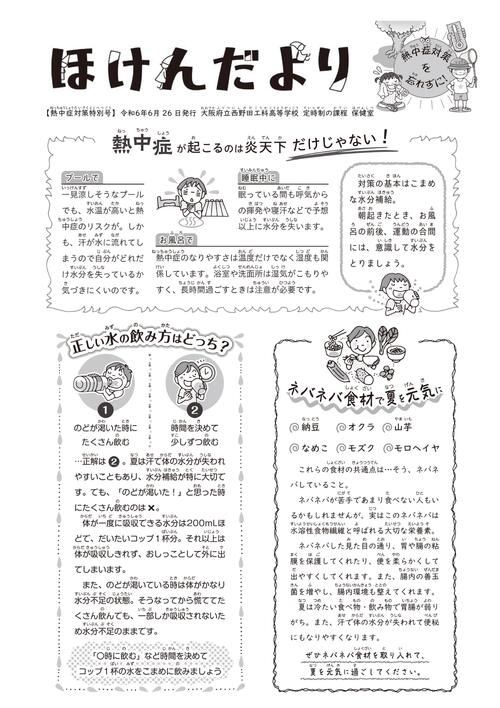 ほけんだより
熱中症対策
を
忘れずに!
【熱中症対策特別号】 令和6年6月 26 日発行 大阪府立西野田工科高等学校 定時制の課程 保健室
熱中症が起こるのは炎天下だけじゃない!
プールで
一見涼しそうなプール
でも、水温が高いと熱
中症のリスクが。しか
も、汗が水に流れてし
まうので自分がどれだ
け水分を失っているか
気づきにくいのです。
睡眠中に
眠っている間も呼気から
の揮発や寝汗などで予想
以上に水分を失います。
お風呂で
熱中症のなりやすさは温度だけでなく湿度も関
係しています。浴室や洗面所は湿気がこもりや
すく、長時間過ごすときは注意が必要です。
対策の基本はこまめ
な水分補給。
朝起きたとき、お風
呂の前後、運動の合間
には、意識して水分を
とりましょう。
正しい水の飲み方はどっち?
1
のどが渇いた時に
たくさん飲む
2
時間を決めて
少しずつ飲む
…正解は❷。夏は汗で体の水分が失われ
やすいこともあり、水分補給が特に大切で
す。でも、「のどが渇いた!」と思った時
にたくさん飲むのは✖。
体が一度に吸収できる水分は200mLほ
どで、だいたいコップ1杯分。それ以上は
体が吸収しきれず、おしっことして外に出
てしまいます。
また、のどが渇いている時は体がかなり
水分不足の状態。そうなってから慌ててた
くさん飲んでも、一部しか吸収されないた
め水分不足のままです。
「〇時に飲む」など時間を決めて
コップ1杯の水をこまめに飲みましょう
ネバネバ食材で夏を元気に
◎納豆 ◎オクラ ◎山芋
◎なめこ ◎モズク ◎モロヘイヤ
これらの食材の共通点は…そう、ネバネ
バしていること。
ネバネバが苦手であまり食べない人もい
るかもしれませんが、実はこのネバネバは
水溶性食物繊維と呼ばれる大切な栄養素。
ネバネバした見た目の通り、胃や腸の粘
膜を保護してくれたり、便を柔らかくして
出やすくしてくれます。また、腸内の善玉
菌を増やし、腸内環境も整えてくれます。
夏は冷たい食べ物・飲み物で胃腸が弱り
がち。また、汗で体の水分が失われて便秘
にもなりやすくなります。
ぜひネバネバ食材を取り入れて、
夏を元気に過ごしてください。